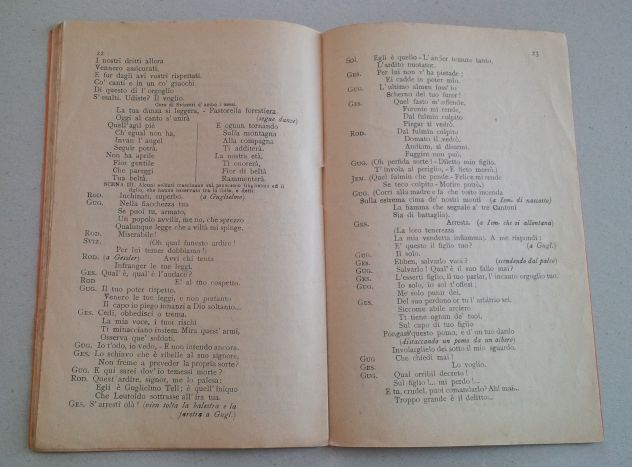 22
I nostri dritti allora
Vennero assicurati.
E fur dagli avi vostri rispettati.
Co' canti e in un co' giuochi
Di questo di l'orgoglio
S'esalti. Udiste? Il voglio.
Coro di Svizzeri d'ambo i sessi.
La tua danza si leggera, - Pastorella forestiera.
Oggi al canto s'unirà (segue danza)
Quell'agil piè
Ch'egual non ha,
Invan l'augel
Seguir potrà,
Non ha aprile
Fior gentile
Che pareggi
Tua beltà.
E ognun tornando
Sulla montagna
Alla compagna
Ti additerà.
La nostra età,
Ti onorerà,
Fior di beltà
Rammenterà.
SCENA III. Alcuni soldati trascinano sul proscenio Guglielmo ed il
figlio, che hanno osservato tra la folla, e detti.
ROD. Inchinati, superbo. (a Guglielmo)
GUG. Nella fiacchezza tua
Se puoi tu, armato,
Un popolo avvilir, me no, che sprezzo
Qualunque legge che a viltà mi spinge.
ROD. Miserabile!
SVIZ. (Oh qual funesto ardire!
Per lui temer dobbiamo!)
ROD. (a Gessler) Avvi chi tenta
Infranger le tue leggi.
GES. Qual'è, qual'è l'audace?
ROD E' al tuo cospetto.
GUG. Il tuo poter rispetto,
Venero le tue leggi, e non pertanto
Il capo io piego ionanzi a Dio soltanto...
GES. Cedi, obbedisci o trema.
La mia voce, i tuoi rischi
Ti minacciano insiem. Mira quest'armi,
Osserva que' soldati.
GUG. Io t'odo, io vedo, - E non intendo ancora.
GES. Lo schiavo che è ribelle al suo signore,
Non freme a preveder la propria sorte?
GUG. E qui sarei dov'io temessi morte?
ROD. Quest'ardire, signor, me lo palesa:
Egli è Guglielmo Tell; è quell'iniquo
Che Leutoldo sottrasse all'ira tua.
GES. S'arresti olà! (vien tolta la balestra e la
faretra a Gugl.)
23
SOL. Egli è quello - L'arcier temuto tanto,
L'ardito nuotator.
GES. Per lui non v'ha pietade;
Ei cadde in poter mio.
GUG. L'ultimo almen foss'io
Scherno del tuo furor!
GES. Quel fasto m'offende,
Furente mi rende,
Dal fulmin colpito
Piegar ti vedrò.
ROD. Dal fulmin colpito
Domato il vedrò.
Andiam, si disarmi,
Fuggire non può.
GUG. (Oh perfida sorte! - Diletto mio figlio,
T'invola al periglio, - E lieto morrò.)
JEM. (Quel fulmin che pende - Felice mi rende
Se teco colpito - Morire potrò.)
GUG. (Corri alla madre e fa che tosto incenda
Sulla estrema cima de' nostri monti (a Jem. di nascosto)
La fiamma che segnale a' tre Cantoni
Sia di battaglia).
GES. Arresta. (a Jem. che si allontana)
(La loro tenerezza
La mia vendetta infiamma). A me rispondi:
E' questo il figlio tuo? (a Gugl.)
GUG. Il solo.
GES. Ebben, salvarlo vuoi? (scendendo dal palco)
GUG. Salvarlo! Qual'è il suo fallo mai?
GES. L'esserti figlio, il tuo parlar, l'incauto orgoglio tuo.
GUG. Io solo, io sol t'offesi;
Me solo punir dei.
GES. Del suo perdono or tu l'arbitro sei.
Siccome abile arciero
Ti tiene ognun de' tuoi,
Sul capo di tuo figlio
Pongasi questo pomo, e d'un tuo dardo
(distaccando un pomo da un albero)
Involarglielo dei sotto il mio sguardo.
GUG Che chiedi mai!
GES. Lo voglio.
GUG. Qual orribil decreto!
Sul figlio!... mi perdo!...
E tu, crudel, puoi comandarlo? Ah! mai...
Troppo grande è il delitto...